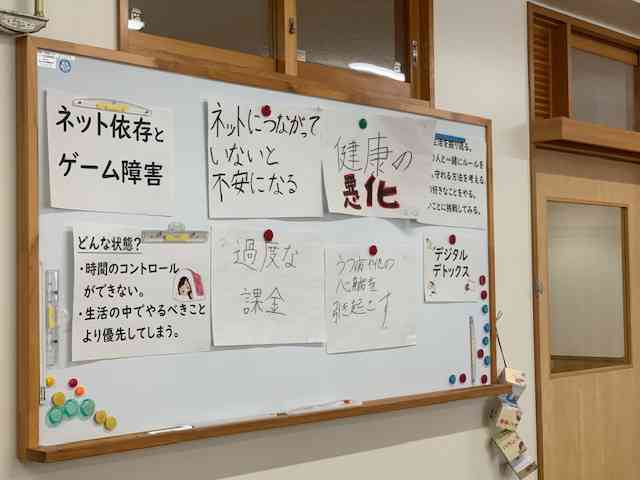 ネット依存と
ゲーム障害
ネットにつながって
いないと
不安になる
健康の
悪化
生活を振り返る。
人と一緒にルールを
守れる方法を考える
好きなことをやる。
ことに挑戦してみる。
どんな状態?
・時間のコントロール
ができない。
・生活の中でやるべきこと
より優先してしまう。
過度な
課金
うつ病や他の
心の病を
引き起こす
デジタル
デトックス